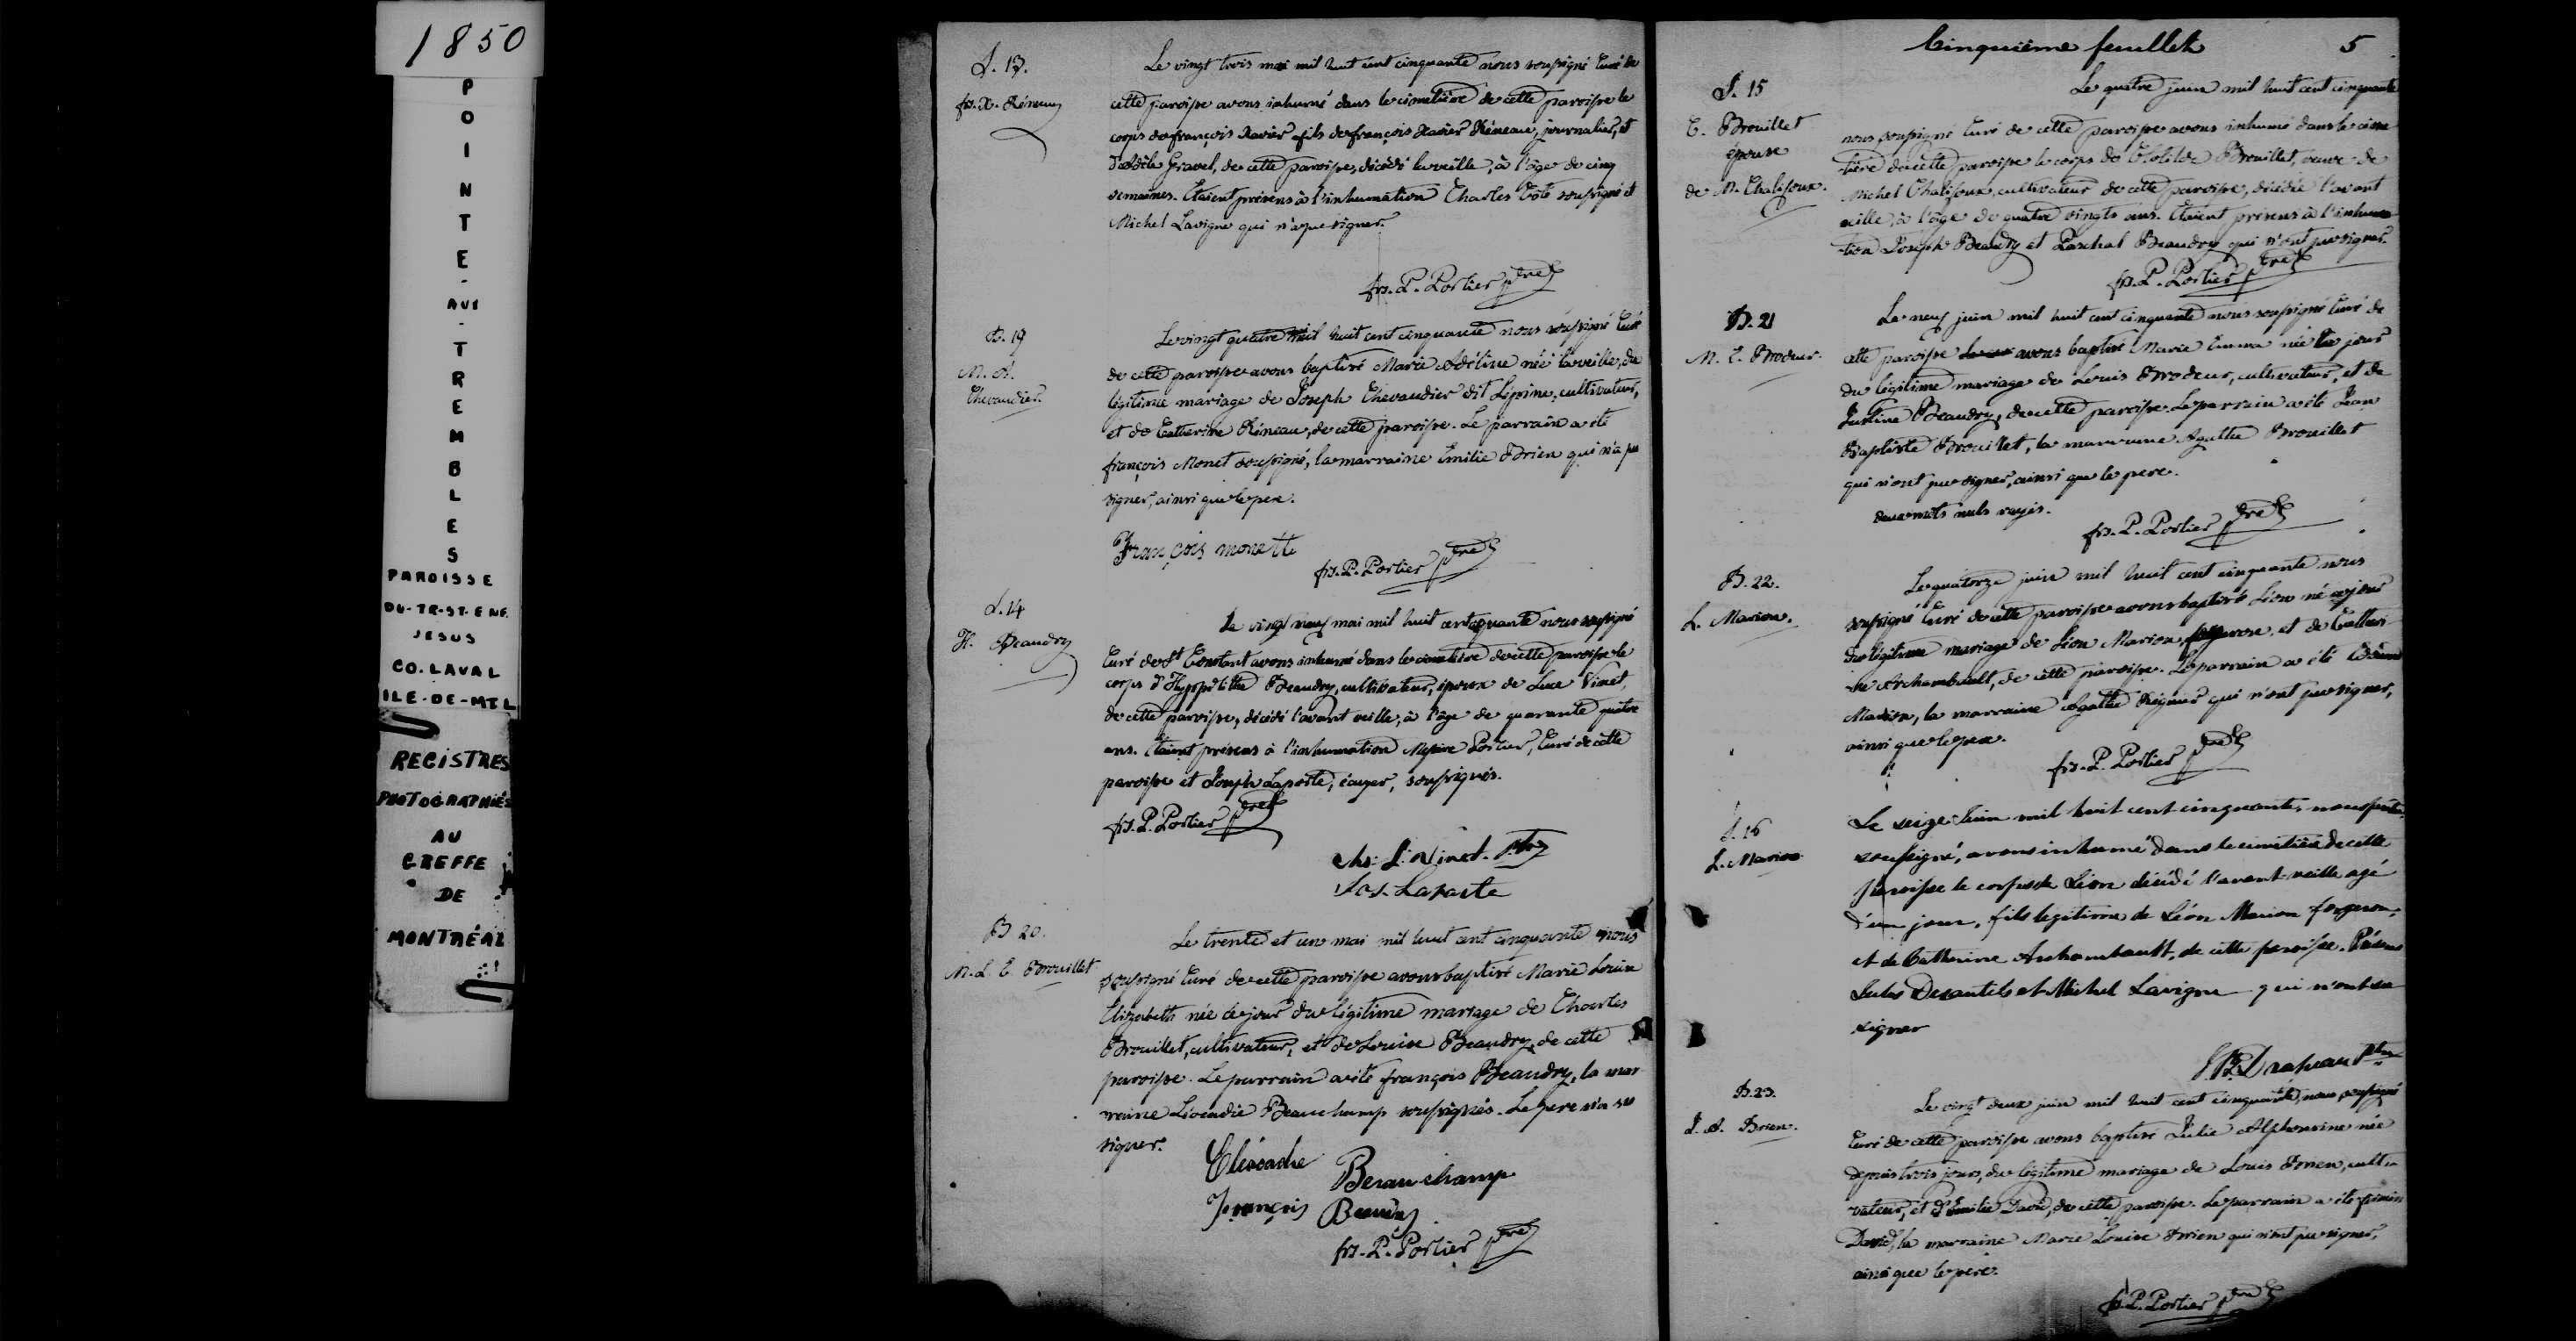 1850
POINTE-AUX-TREMBLES
PAROISSE
DU-TR-ST-ENF.
JESUS
CO. LAVAL
ILE-DE-MTL
REGISTRES
PHOTOGRAPHIÉS
AU
GREFFE
DE
MONTRÉAL
S. 13.
frs. X. Réneau
Le vingt trois mai mil huit cent cinquante nous soussigné Curé de
cette paroisse avons inhumé dans le cimetière de cette paroisse le
corps de françois Xavier fils de françois Xavier Réneau, journalier, et
d'Adèle Gravel, de cette paroisse, décédé la veille, à l'âge de cinq
semaines. Etaient présens à l'inhumation Charles Coté soussigné et
Michel Lavigne qui n'a pu signer.
frs. P. Portier ptre
B. 19
M. A.
Chevaudier.
Le vingt quatre mil huit cent cinquante nous soussigné Curé
de cette paroisse avons baptisé Marie Adéline née la veille, du
légitime mariage de Joseph Chevaudier dit Lépine, cultivateur,
et de Catherine Réneau, de cette paroisse. Le parrain a été
françois Monet soussigné, la marraine Emilie Brien qui n'a pu
signer, ainsi que le pere.
François monette
frs. P. Portier ptre
S. 14
H. Beaudry
Le vingt neuf mai mil huit cent cinquante nous soussigné
Curé de St Constant avons inhumé dans le cimetière de cette paroisse le
corps d'Hyppolithe Beaudry, cultivateur, époux de Luce Vinet,
de cette paroisse, décédé l'avant veille, à l'âge de quarante quatre
ans. Etaient présens à l'inhumation Messire Portier, Curé de cette
paroisse et Joseph Laporte, écuyer, soussignés.
frs. P. Portier ptre
Chs. L. Vinet. Ptre
Jos. Laporte
B 20.
M. L. E. Brouillet
Le trente et un mai mil huit cent cinquante nous
soussigné Curé de cette paroisse avons baptisé Marie Louise
Elizabeth née ce jour du légitime mariage de Charles
Brouillet, cultivateur, et de Louise Beaudry, de cette
paroisse. Le parrain a été françois Beaudry, la mar
raine Léocadie Beauchamp soussignés. Le pere n'a su
signer.
Eléocadie Beauchamp
François Beaudry
frs. P. Portier ptre
Cinquième feuillet 5
S. 15
C. Brouillet
épouse
de M. Chalifoux.
Le quatre juin mil huit cent cinquante
nous soussigné Curé de cette paroisse avons inhumé dans le cime
tière de cette paroisse le corps de Clotilde Brouillet, veuve de
Michel Chalifoux, cultivateur de cette paroisse, décédée l'avant
veille, à l'âge de quatre vingts ans. Etaient présens à l'inhuma
tion Joseph Beaudry et Paschal Beaudry qui n'ont pu signer.
frs. P. Portier ptre
B. 21
M. E. Brodeur.
Le neuf juin mil huit cent cinquante nous soussigné Curé de
cette paroisse avons baptisé Marie Emma née ce jour
du légitime mariage de Louis Brodeur, cultivateur, et de
Justine Beaudry, de cette paroisse. Le parrain a été Jean
Baptiste Brouillet, la marraine Agathe Brouillet
qui n'ont pu signer, ainsi que le pere.
deux mots nuls rayés.
frs. P. Portier ptre
B. 22.
L. Marion.
Le quatorze juin mil huit cent cinquante nous
soussigné Curé de cette paroisse avons baptisé Léon né ce jour
du légitime mariage de Léon Marion, forgeron, et de Catheri
ne Archambault, de cette paroisse. Le parrain a été
Marion, la marraine Agathe Regnier qui n'ont pu signer,
ainsi que le pere.
frs. P. Portier ptre
S. 16
L. Marion
Le seize Juin mil huit cent cinquante, nous ptre
soussigné, avons inhumé dans le cimetière de cette
Paroisse le corps de Léon décédé l'avant-veille agé
d'un jour, fils legitime de Léon Marion forgeron,
et de Catherine Archambault, de cette paroisse. Présens
Jules Desautels et Michel Lavigne qui n'ont su
signer
Drapeau Ptre
B. 23.
J. A. Brien.
Le vingt deux juin mil huit cent cinquante, nous soussigné
Curé de cette paroisse avons baptisé Julie Alphonsine née
depuis trois jours, du légitime mariage de Louis Brien, culti
vateur, et d'Emilie David, de cette paroisse. Le parrain a été
David, la marraine Marie Louise Brien qui n'ont pu signer,
ainsi que le pere.
frs. P. Portier ptre